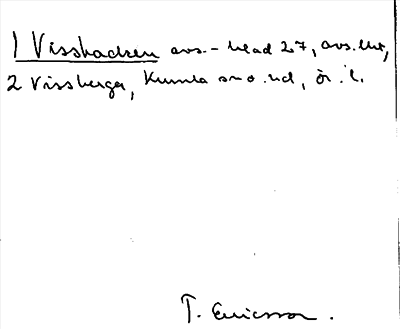 1 Vissbacken avs. - blad 27, avs. utr,
2 Vissberga, Kumla sn o. hd, ör. l.
T. Ericsson.